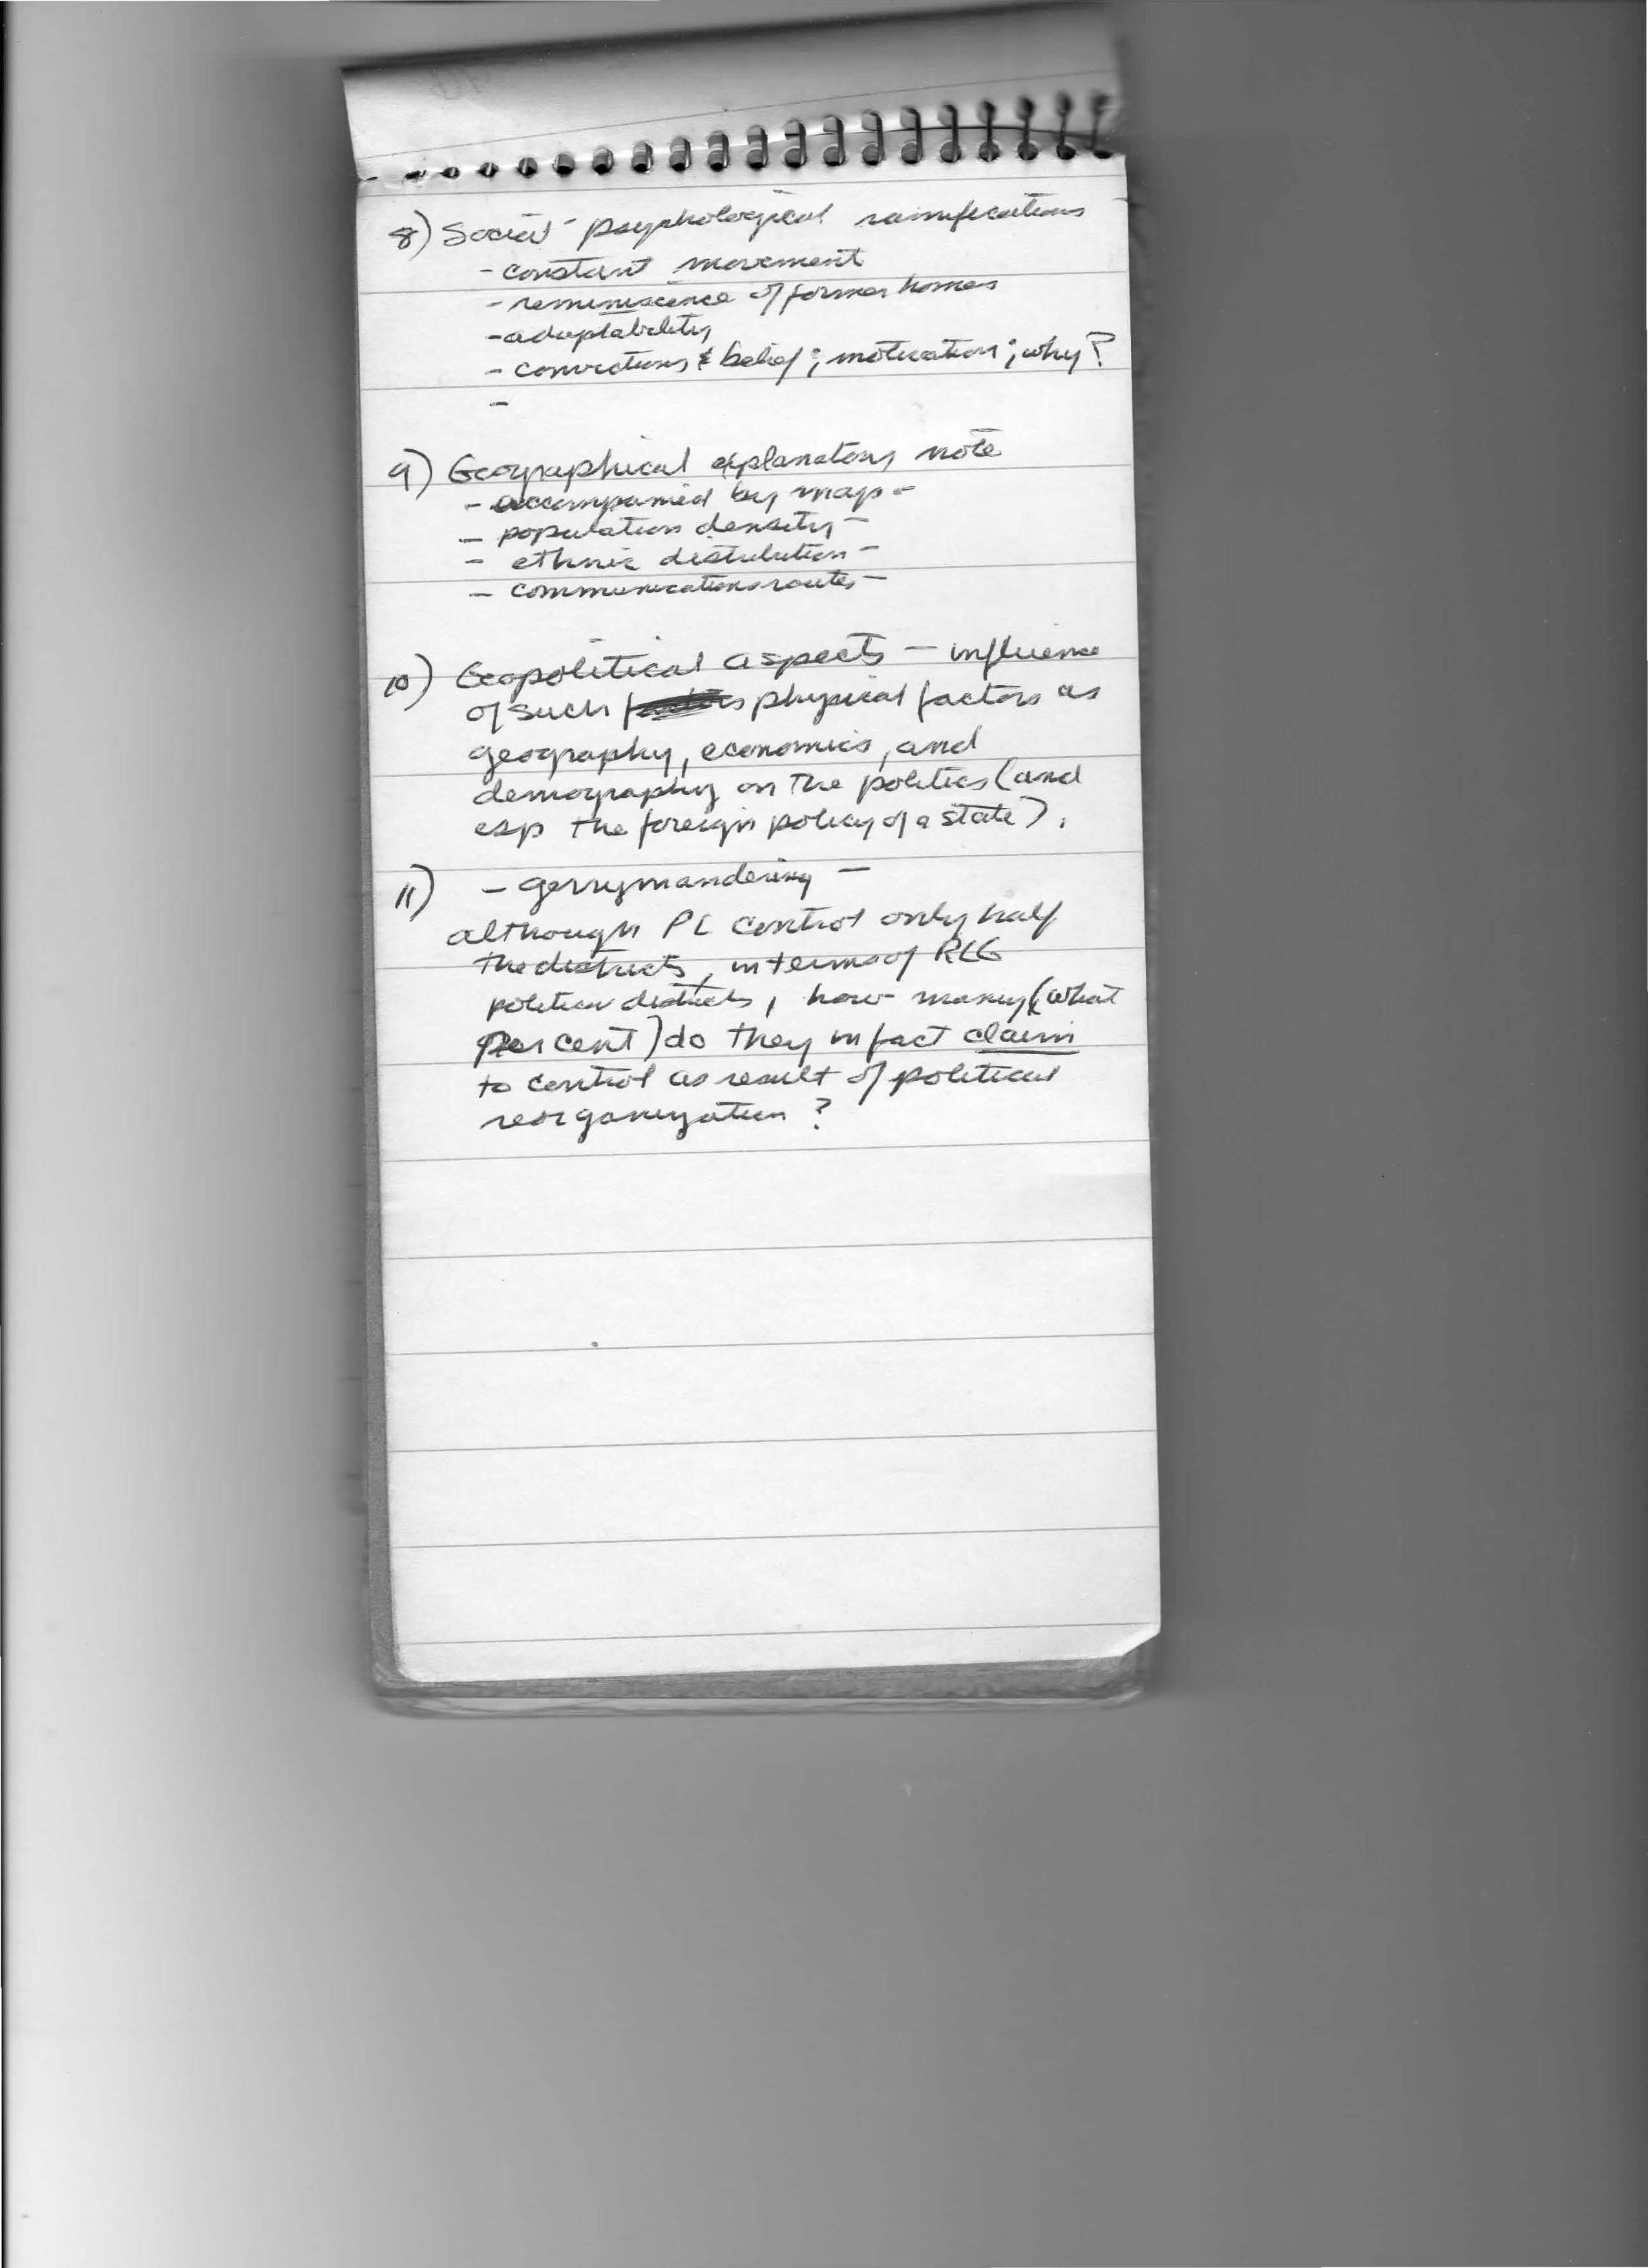 8) Social-psychological ramifications
- constant movement
- reminiscence of former homes
- adaptability
- convictions & belief; motivation; why?
-
9) Geographical explanatory note
- accompanied by map -
- population density -
- ethnic distribution -
- communications routes -
10) Geopolitical aspects - influence
of such physical factors as
geography, economics, and
demography on the politics (and
esp the foreign policy of a state).
11) - gerrymandering -
although PL control only half
the districts, in terms of RLG
political districts, how many (what
per cent) do they in fact claim
to control as result of political
reorganization?